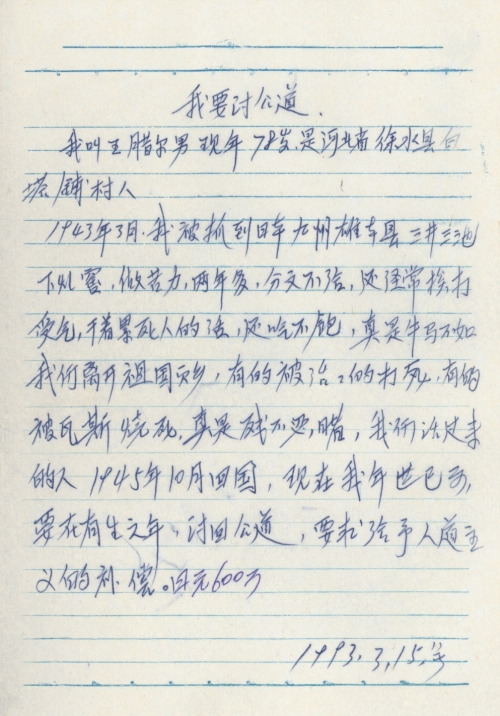 我要讨公道.
我叫王腊尔男现年78岁.是河北省徐水县白
塔铺村人
1943年3月.我被抓到日本九州雄本县三井三池
下煤窑,做苦力,两年多,分文不给,还经常挨打
受气,干着累死人的活,还吃不饱,真是牛马不如
我们离开祖国家乡,有的被活活的打死,有的
被瓦斯烧死,真是残不忍睹,我们活过来
的人1945年10月回国,现在我年世已高,
要在有生之年,讨回公道,要求给予人道主
义的补偿。日元600万
1993.3,15,写